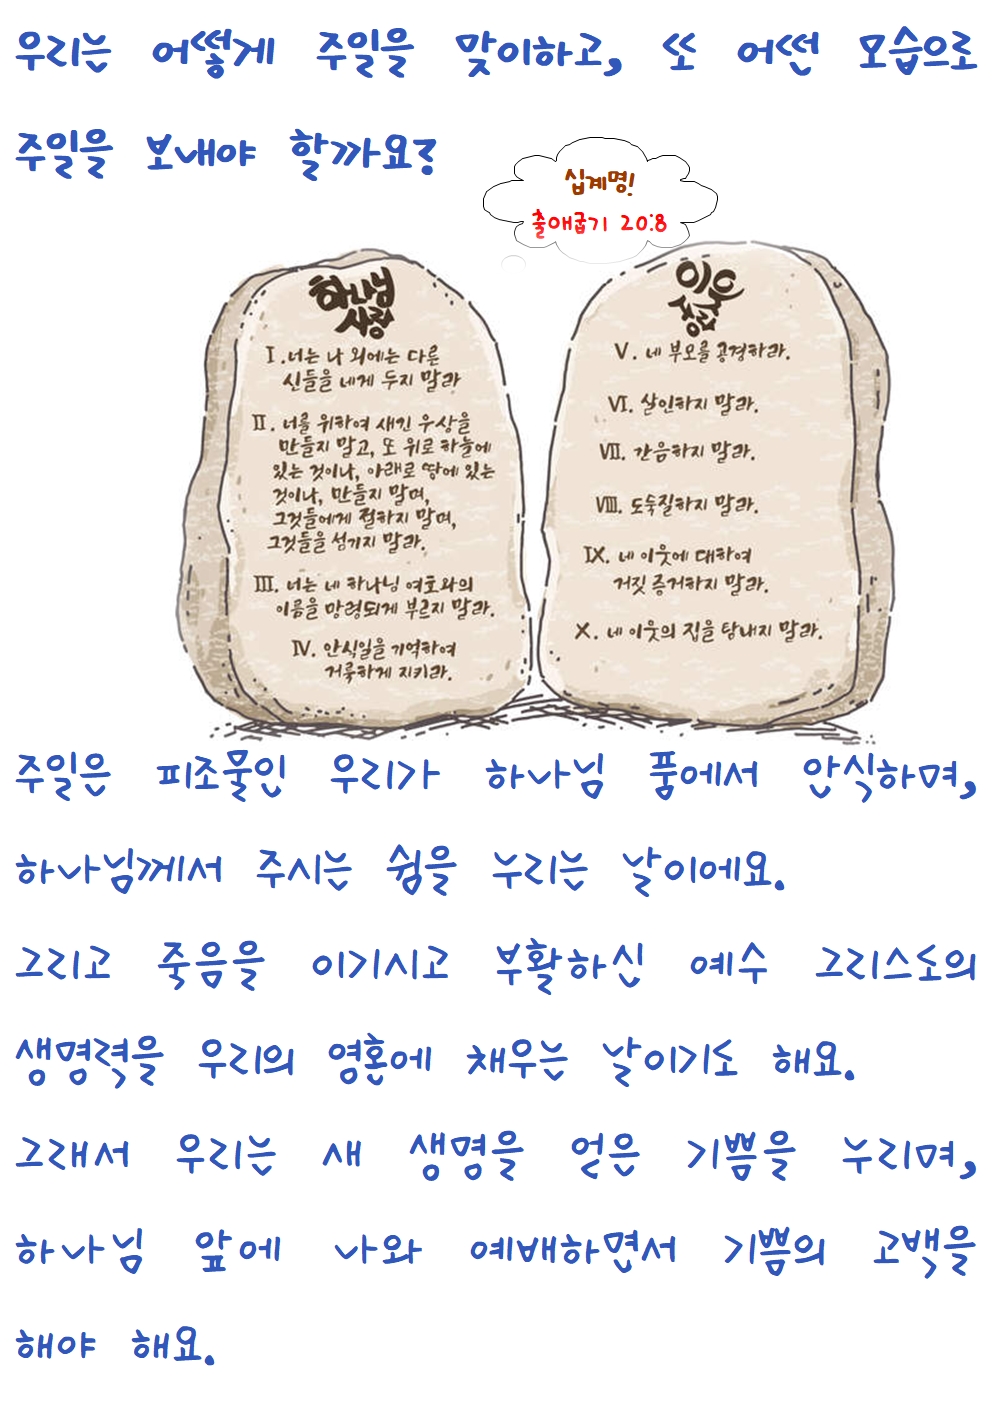 우리는 어떻게 주일을 맞이하고, 또 어떤 모습으로
주일을 보내야 할까요?
십계명!
출애굽기 20:8
하나님
사랑
Ⅰ.너는 나 외에는 다른
신들을 네게 두지 말라
Ⅱ. 너를 위하여 새긴 우상을
만들지 말고, 또 위로 하늘에
있는 것이나, 아래로 땅에 있는
것이나, 만들지 말며,
그것들에게 절하지 말며,
그것들을 섬기지 말라.
Ⅲ. 너는 네 하나님 여호와의
이름을 망령되게 부르지 말라.
Ⅳ. 안식일을 기억하여
거룩하게 지키라.
이웃
사랑
Ⅴ. 네 부모를 공경하라.
Ⅵ. 살인하지 말라.
Ⅶ. 간음하지 말라.
Ⅷ. 도둑질하지 말라.
Ⅸ. 네 이웃에 대하여
거짓 증거하지 말라.
Ⅹ. 네 이웃의 집을 탐내지 말라.
주일은 피조물인 우리가 하나님 품에서 안식하며,
하나님께서 주시는 쉼을 누리는 날이에요.
그리고 죽음을 이기시고 부활하신 예수 그리스도의
생명력을 우리의 영혼에 채우는 날이기도 해요.
그래서 우리는 새 생명을 얻은 기쁨을 누리며,
하나님 앞에 나와 예배하면서 기쁨의 고백을
해야 해요.